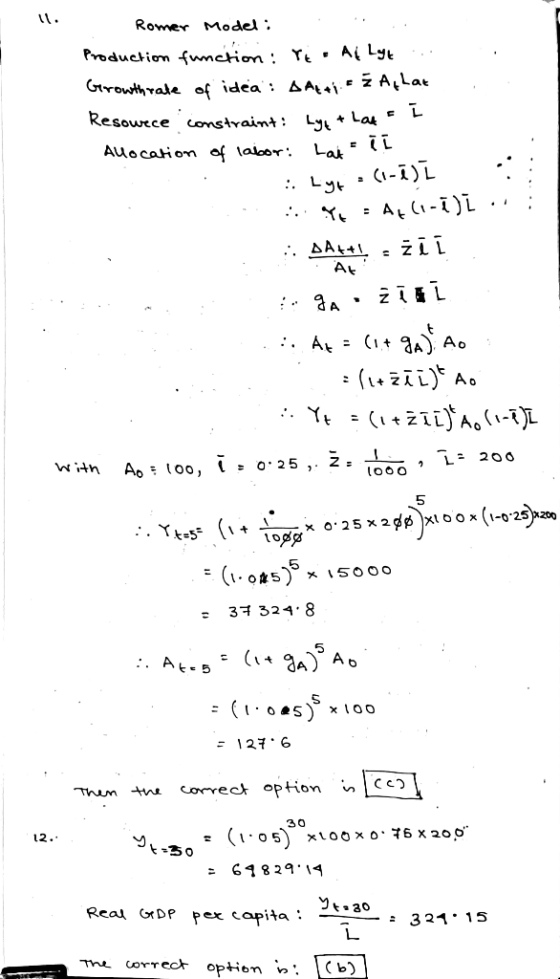 11.
Romer Model:
Production function: Yt = At Lyt
Growthrate of idea: ΔAt+1 = z̄ At Lat
Resource constraint: Lyt + Lat = L̄
Allocation of labor: Lat = l̄ L̄
∴ Lyt = (1-l̄)L̄
∴ Yt = At (1-l̄)L̄
∴ ΔAt+1 / At = z̄ l̄ L̄
∴ gA = z̄ l̄ L̄
∴ At = (1+gA)^t A0
= (1+z̄ l̄ L̄)^t A0
∴ Yt = (1+z̄ l̄ L̄)^t A0 (1-l̄)L̄
With A0 = 100, l̄ = 0.25, z̄ = 1/1000, L̄ = 200
∴ Yt=5 = (1 + 1/1000 × 0.25 × 200)^5 × 100 × (1-0.25) × 200
= (1.05)^5 × 15000
= 37324.8
∴ At=5 = (1+gA)^5 A0
= (1.05)^5 × 100
= 127.6
Then the correct option is (c)
12. yt=30 = (1.05)^30 × 100 × 0.75 × 200
= 64829.14
Real GDP per capita: yt=30 / L̄ = 324.15
The correct option is: (b)